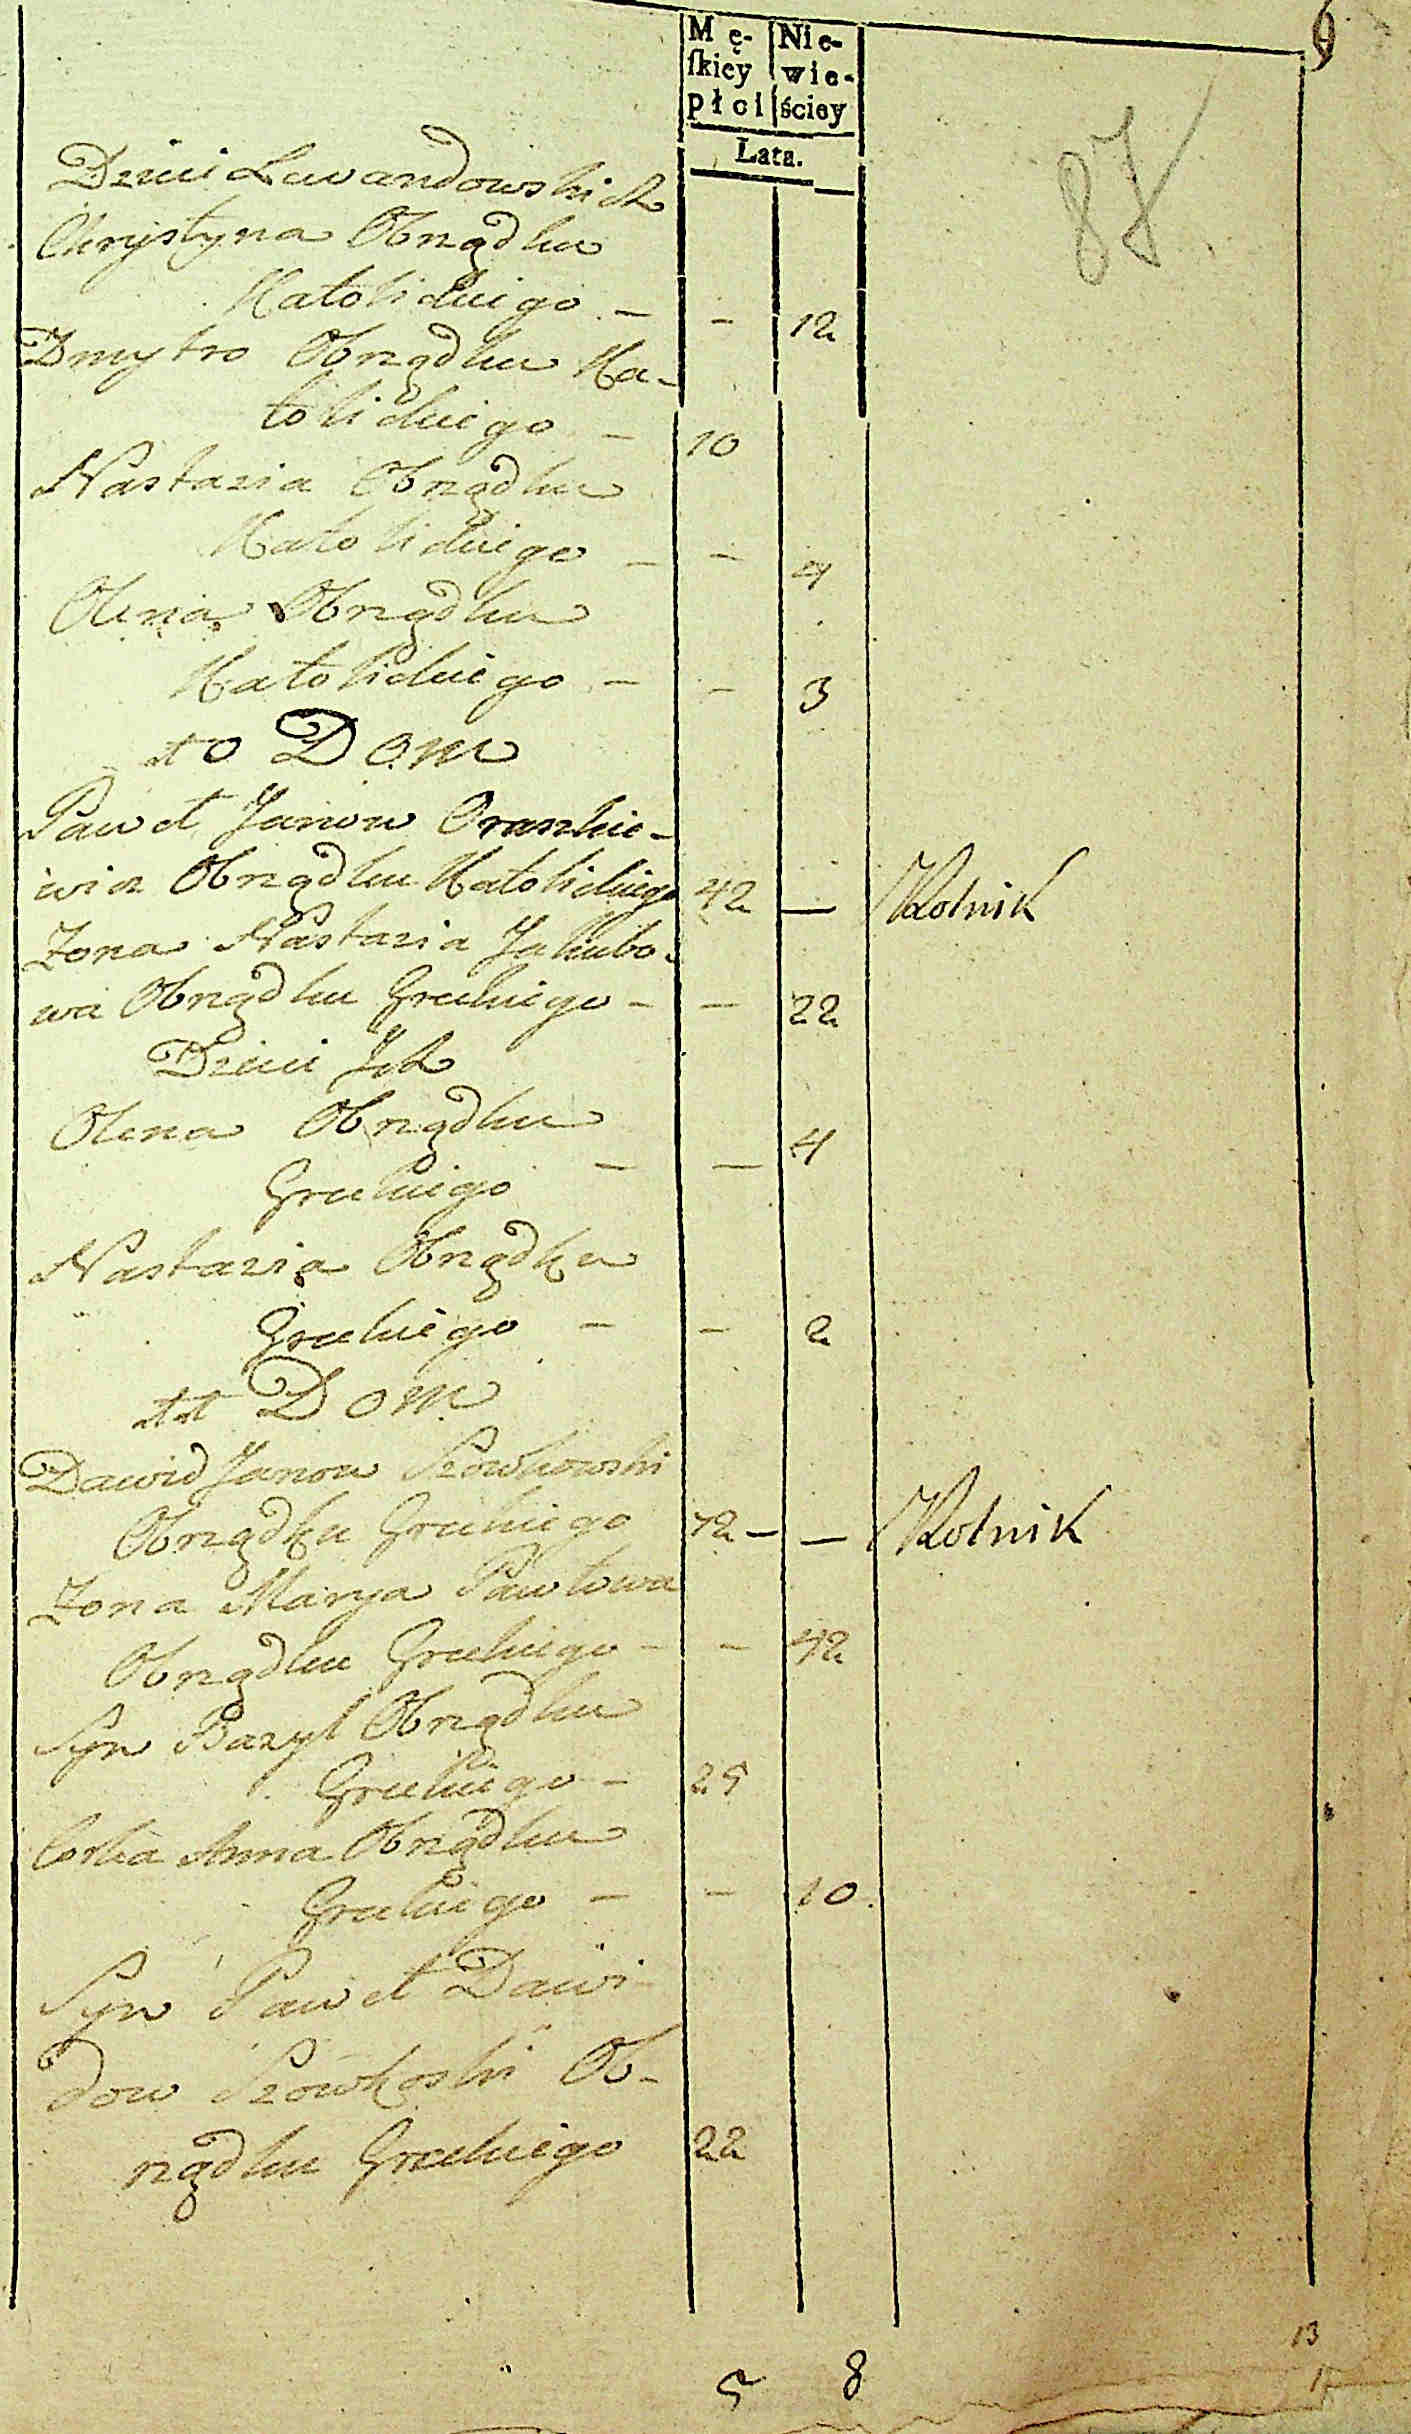 9
Mę- Nie-
ſkiey wie-
płci ściey
Lata.
87
Dzieci Lewandowskich
Chrystyna Obrządku
Katolickiego - - 12
Dmytro Obrządku Ka-
tolickiego - 10
Nastazia Obrządku
Katolickiego - - 4
Olena Obrządku
Katolickiego - - 3
10 Dom
Paweł Janow
wicz Obrządku Katolickiego 42 — Rolnik
Zona Nastazia Jakubo-
wa Obrządku Greckiego - - 22
Dzieci Ich
Olena Obrządku
Greckiego - — 4
Nastazia Obrządku
Greckiego - - 2
11 Dom
Dawid Janow Szowkowski
Obrządku Greckiego 72 - — Rolnik
Zona Marya Pawłowa
Obrządku Greckiego - - 42
Syn Bazyl Obrządku
Greckiego - 25
Corka Anna Obrządku
Greckiego - - 10
Syn Paweł Dawi-
dow Szowkoski Ob-
rządku Greckiego 22
13
5 8